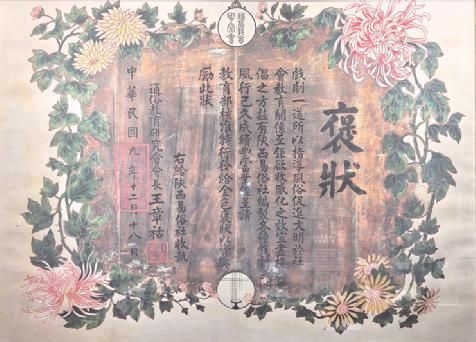 褒狀
戲劇一道所以指導風俗促進文明於社
會教育關係至鉅欲收感化之效宜盡提
倡之方茲有陝西易俗社編製各種戲
風行已久成績呈請
教育部核准特行發給金色褒狀以資獎
勵此狀
右給陝西易俗社收執
通俗教育研究會會長王章祜
中華民國九年十二月十八日